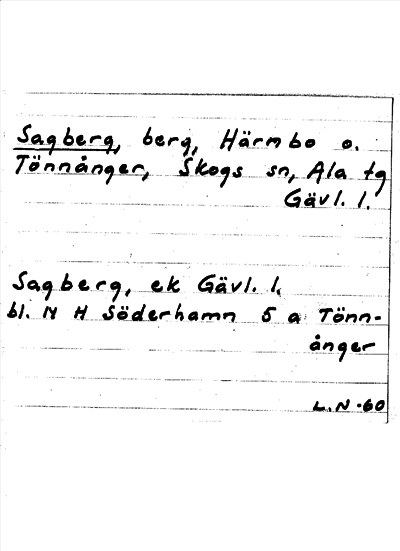 Sagberg, berg, Härmbo o.
Tönnånger, Skogs sn, Ala tg
Gävl. l.
Sagberg, ek Gävl. l.
bl. N H Söderhamn 5 a Tönn-
ånger
L.N-60